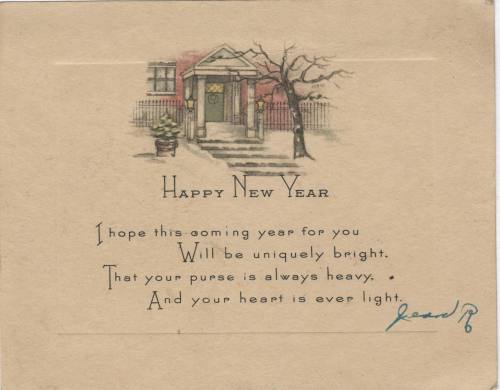 Happy New Year
I hope this coming year for you
Will be uniquely bright.
That your purse is always heavy.
And your heart is ever light.